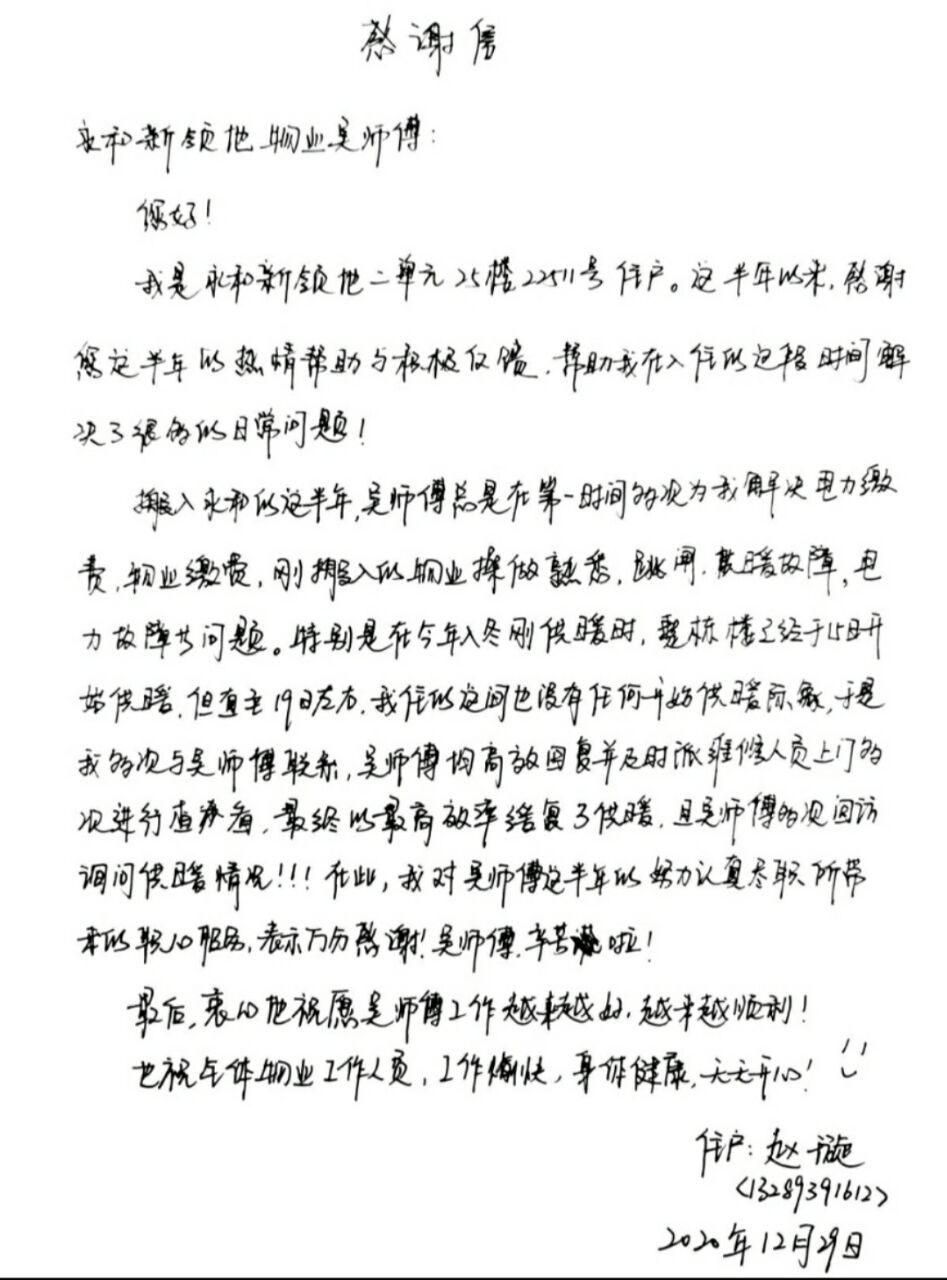 感谢信
永和新领地物业吴师傅:
您好!
我是永和新领地二单元25楼22511号住户。这半年以来,感谢
您这半年的热情帮助与积极反馈,帮助我在入住的这段时间解
决了很多的日常问题!
搬入永和的这半年,吴师傅总是在第一时间多次为我解决电力缴
费,物业缴费,刚搬入的物业操做熟悉,跳闸,供暖故障,电
力故障等问题。特别是在今年入冬刚供暖时,整栋楼已经于15日开
始供暖,但直至19日左右,我住的这间也没有任何开始供暖迹象,于是
我多次与吴师傅联系,吴师傅均高效回复并及时派维修人员上门多
次进行查看,最终以最高效率修复了供暖,且吴师傅多次回访
询问供暖情况!!!在此,我对吴师傅这半年的努力认真尽职所带
来的服务,表示万分感谢!吴师傅,辛苦啦!
最后,衷心地祝愿吴师傅工作越来越好,越来越顺利!
也祝全体物业工作人员,工作愉快,身体健康,天天开心!
住户:赵一璇
<13289391612>
2020年12月29日